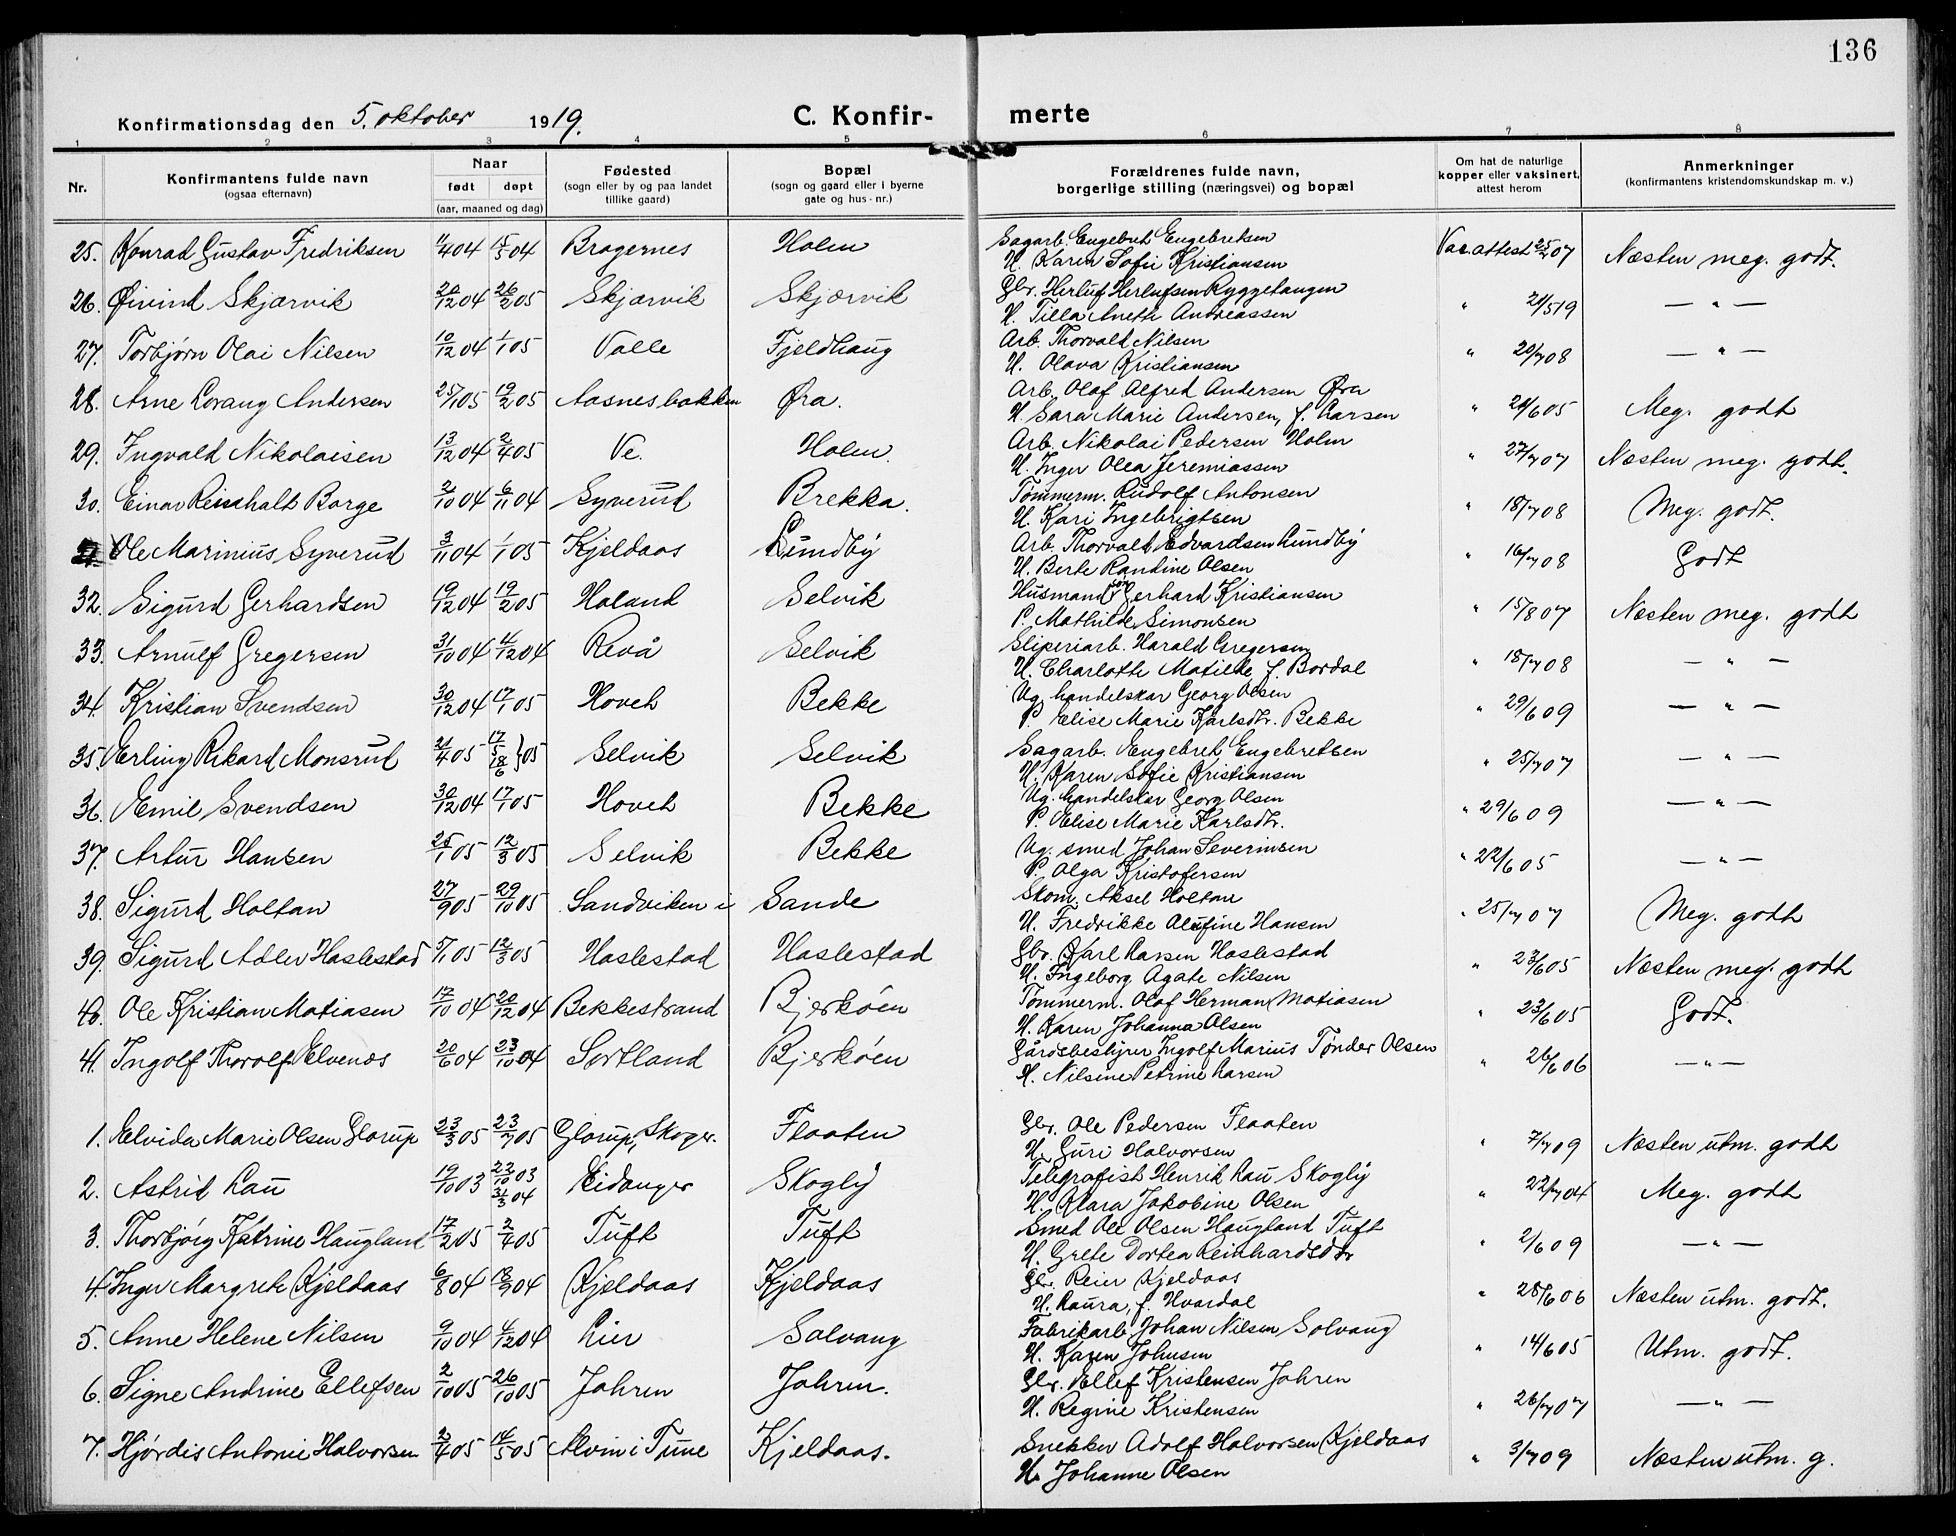 136
Konfirmationsdag den 5. oktober 1919.
C. Konfirmerte
1 2 3 4 5 6 7 8
Nr. | Konfirmantens fulde navn (ogsaa efternavn) | Naar født døpt (aar, maaned og dag) | Fødested (sogn eller by og paa landet tillike gaard) | Bopæl (sogn og gaard eller i byerne gate og hus-nr.) | Forældrenes fulde navn, borgerlige stilling (næringsvei) og bopæl | Om hat de naturlige kopper eller vaksinert, attest herom | Anmerkninger (konfirmantens kristendomskundskap m. v.)
25. Konrad Gustav Fredriksen 11/4 04 15/5 04 Bragernes Holm Sagarb. Engebret Engebretsen
H. Karen Sofie Kristiansen Vac. attest 25/2 07 Næsten meg. godt.
26. Øivind Skjærvik 20/12 04 26/2 05 Skjærvik Skjærvik Gbr. Herluf Herlufsen Ryggetangen
H. Tilla Aneth Andreassen " 21/5 19 — " —
27. Torbjørn Olai Nilsen 10/12 04 1/1 05 Valle Fjeldhaug Arb. Thorvald Nilsen
H. Olava Kristiansen " 20/7 08 — " —
28. Arne Lorang Andersen 25/1 05 19/2 05 Aasnesbakken Øra. Arb. Olaf Alfred Andersen Øra
H Sara Marie Andersen, f. Larsen " 21/6 05 Meg. godt
29. Ingvald Nikolaisen 13/12 04 2/4 05 Ve. Holm. Arb. Nikolai Pedersen Holm
H. Inger Olea Jeremiassen " 27/7 07 Næsten meg. godt.
30. Einar Borge 2/10 04 6/11 04 Syverud Brekka. Tømmerm. Rudolf Antonsen
H. Kari Ingebrigtsen " 18/7 08 Meg. godt.
31. Ole Marinius Syverud 3/11 04 1/1 05 Kjeldaas Lundby Arb. Thorvald Edvardsen Lundby
H. Berte Randine Olsen " 16/7 08 Godt
32. Sigurd Gerhardsen 19/12 04 19/2 05 Holand Selvik Husmandssøn Gerhard Kristiansen
P. Mathilde Simonsen " 15/8 07 Næsten meg. godt
33. Arnulf Gregersen 31/10 04 4/12 04 Revå Selvik Sliperiarb. Harald Gregersen
H. Charlotte Matilde f. Bordal " 18/7 08 — " —
34. Kristian Svendsen 30/12 04 17/1 05 Hovet Bekke Ug. handelskar Georg Olsen
P. Elise Marie Karlsdtr. Bekke " 29/6 09 — " —
35. Erling Rikard Monsrud 21/4 05 17/5 18/6 } 05 Selvik Selvik Sagarb. Engebret Engebretsen
H. Karen Sofie Kristiansen " 25/7 07 — " —
36. Emil Svendsen 30/12 04 17/1 05 Hovet Bekke Ug. handelskar Georg Olsen
P. Elise Marie Karlsdtr. " 29/6 09 — " —
37. Artur Hansen 25/1 05 12/3 05 Selvik Bekke Ug. smed Johan Severinsen
P. Olga Kristofersen " 22/6 05 — " —
38. Sigurd Holtan 27/9 05 29/10 05 Sandviken i Sande Skom. Aksel Holtan
H. Fredrikke Hansen " 25/7 07 Meg. godt
39. Sigurd Adler Haslestad 5/1 05 12/3 05 Haslestad Haslestad Gbr. Karl Larsen Haslestad
H. Ingeborg Agate Nilsen " 23/6 05 Næsten meg. godt
40. Ole Kristian Matiasen 17/10 04 20/12 04 Bekkestrand Bjerkøen Tømmerm. Olaf Herman Matiasen
H. Karen Johanna Olsen " 23/6 05 Godt.
41. Ingolf Thorolf Elvenæs 20/6 04 23/10 04 Sortland Bjerkøen Gårdsbestyrer Ingolf Marius Tønder Olsen
H. Nilsine Petrine Larsen " 26/6 06 — " —
1. Elvida Marie Olsen Glorup 23/3 05 23/7 05 Glorup, Skoger. Flaaten Gbr. Ole Pedersen Flaaten
H. Guri Halvorsen " 7/7 09 Næsten utm. godt
2. Astrid Lau 19/10 03 22/10 03 31/3 04 Eidanger Skogly Telegrafist Henrik Lau Skogly
H. Klara Jakobine Olsen " 22/7 04 Meg. godt
3. Thorbjørg Katrine Haugland 17/2 05 2/4 05 Tuft Tuft Smed Ole Olsen Haugland Tuft
H. Grete Dortea Reinhardsdtr " 2/6 09 — " —
4. Inger Margrete Kjeldaas 6/8 04 18/9 04 Kjeldaas Kjeldaas Gbr. Reier Kjeldaas
H. Laura, f. Hvardal " 28/6 06 Næsten utm. godt.
5. Anne Helene Nilsen 9/10 04 4/12 04 Lier Solvang Fabrikarb. Johan Nilsen Solvang
H. Karen Johnsen " 14/6 05 Utm. godt.
6. Signe Andrine Ellefsen 2/10 05 26/10 05 Jahren Jahren. Gbr. Ellef Kristensen Jahren
H. Regine Kristensen " 26/7 07 — " —
7. Hjørdis Antonie Halvorsen 2/4 05 14/5 05 Alvin i Tune Kjeldaas. Snekker Adolf Halvorsen Kjeldaas
H. Johanne Olsen " 3/7 09 Næsten utm. g.